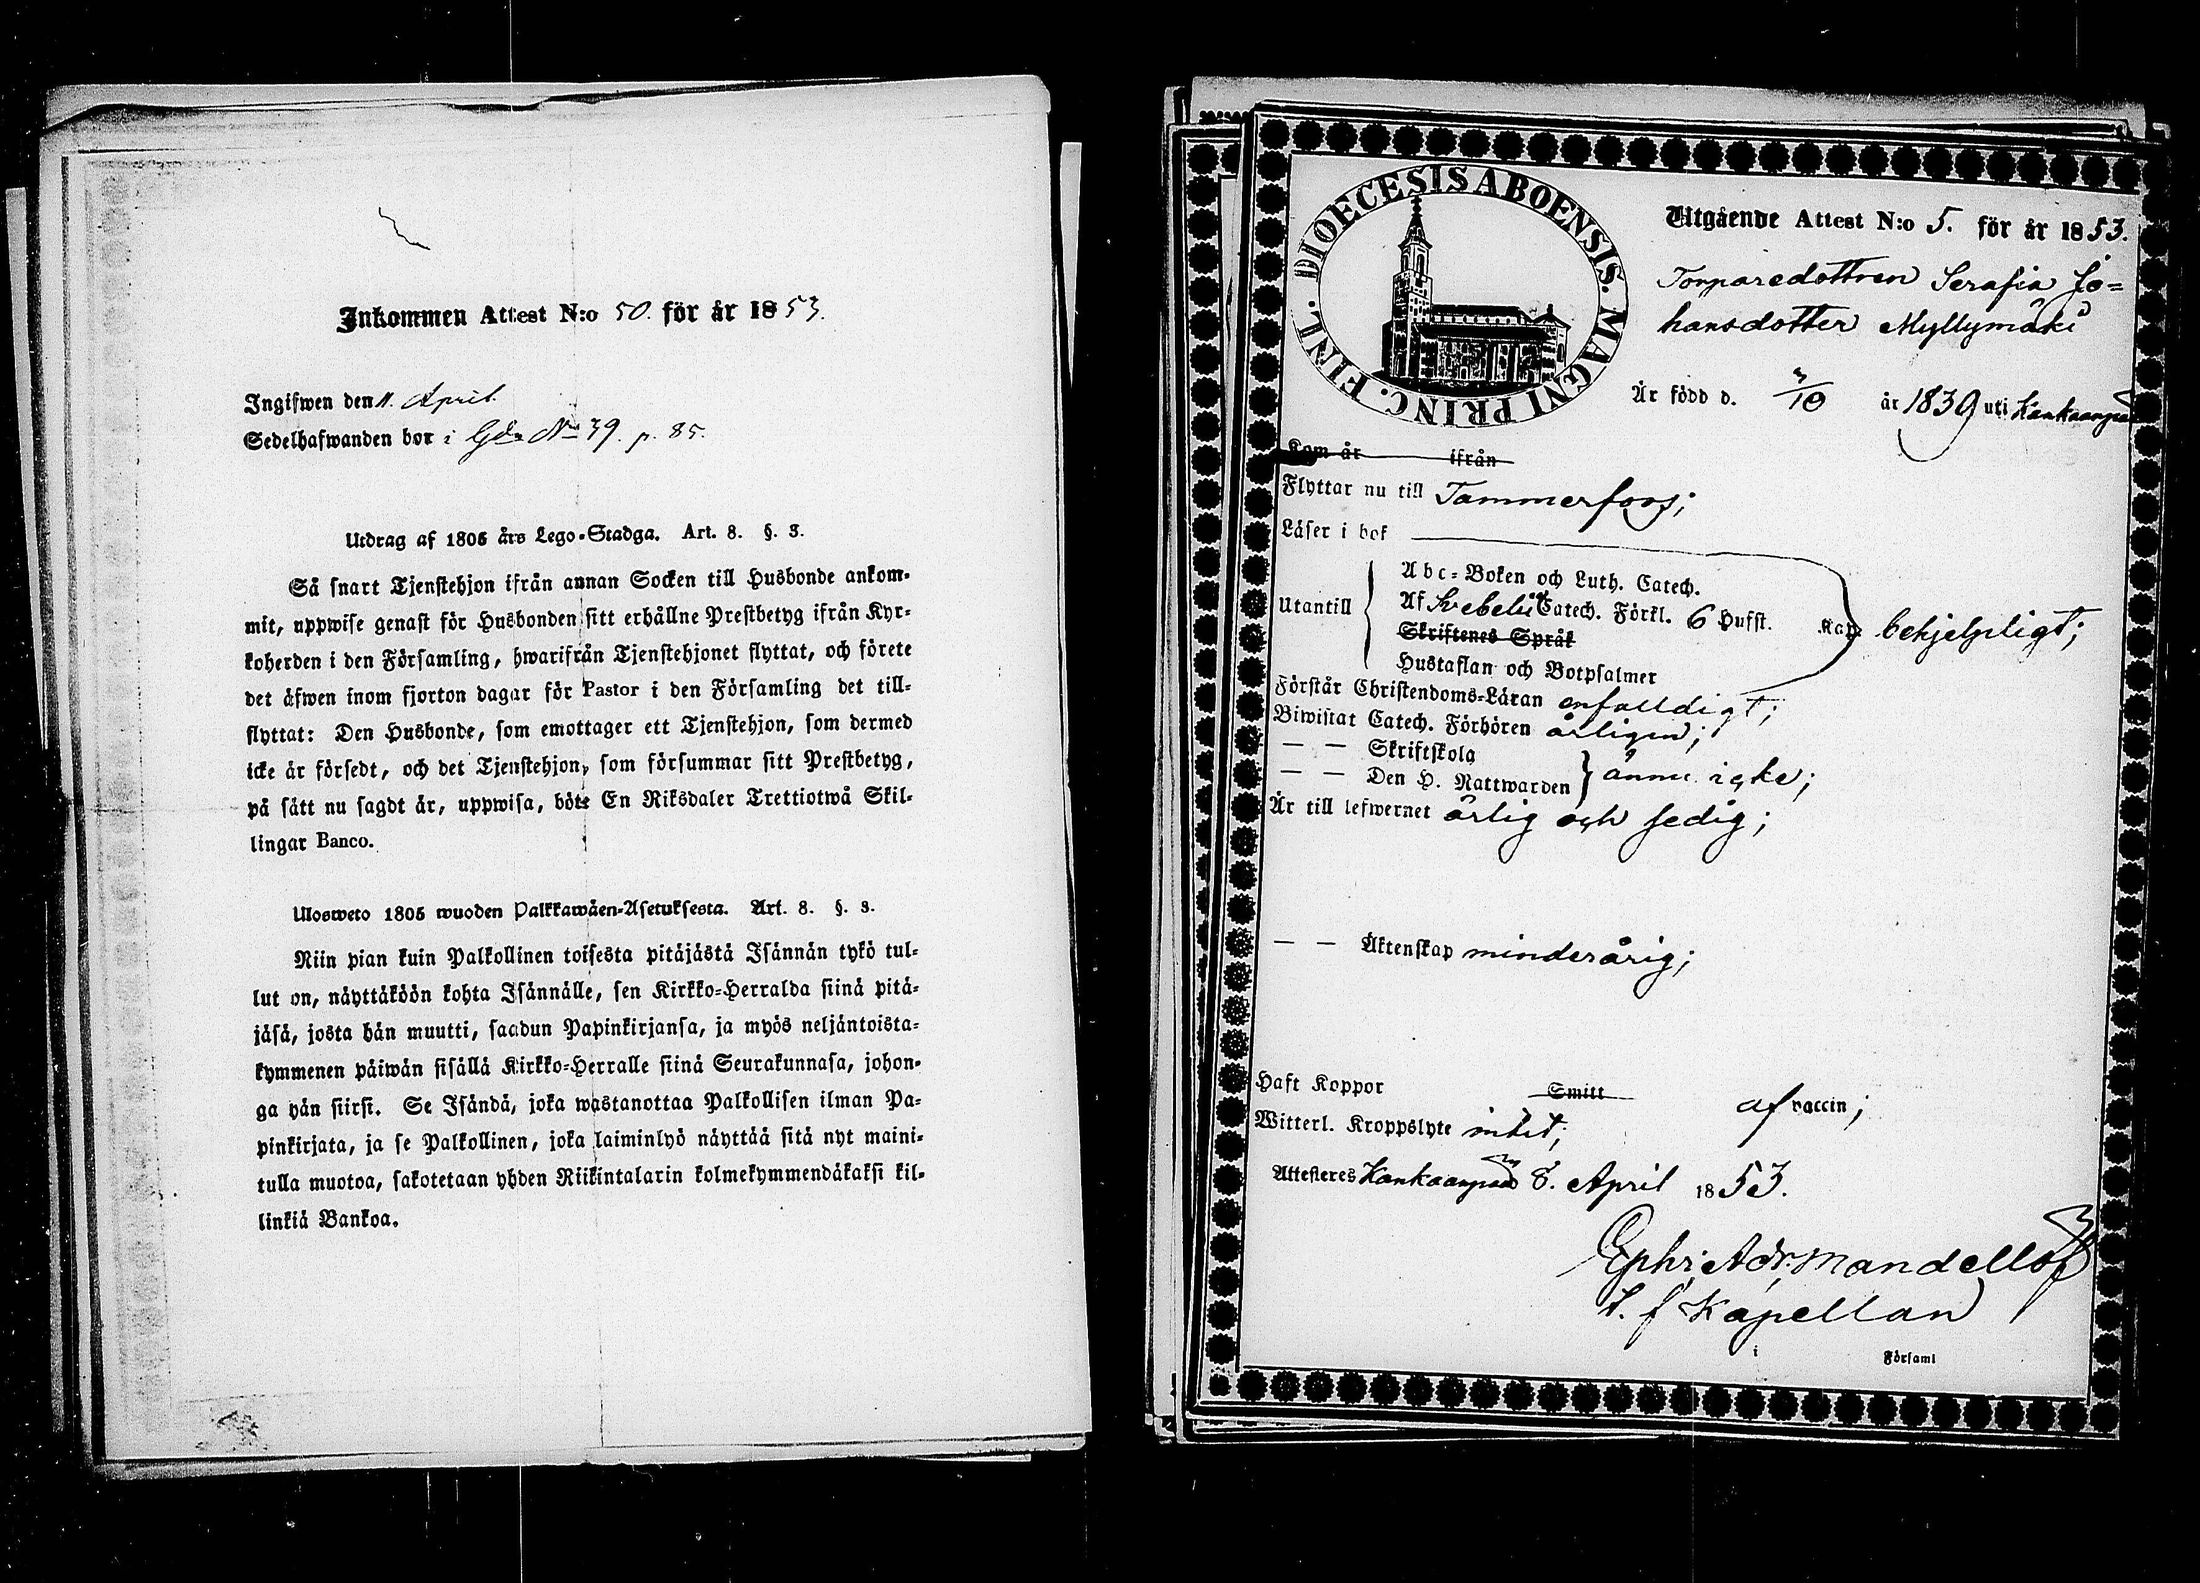 Inkommen Attest N:o 50. för år 1853.
Ingifwen den 11. April.
Sedelhafwanden bor i Gdn No 39. p. 85.
Utdrag af 1805 års Lego-Stadga. Art. 8. §. 3.
Så snart Tjenstehjon ifrån annan Socken till Husbonde ankom-
mit, uppwise genast för Husbonden sitt erhållne Prestbetyg ifrån Kyr-
koherden i den Församling, hwarifrån Tjenstehjonet flyttat, och förete
det äfwen inom fjorton dagar för Pastor i den Församling det till-
flyttat: Den Husbonde, som emottager ett Tjenstehjon, som dermed
icke är försedt, och det Tjenstehjon, som försummar sitt Prestbetyg,
på sätt nu sagdt är, uppwisa, böte En Riksdaler Trettiotwå Skil-
lingar Banco.
Ulosweto 1805 wuoden Palkkawäen-Asetuksesta. Art. 8. §. 3.
Niin pian kuin Palkollinen toisesta pitäjästä Isännän tykö tul-
lut on, näyttäköön kohta Isännälle, sen Kirkko-Herralda siinä pitä-
jäsä, josta hän muutti, saadun Papinkirjansa, ja myös neljäntoista-
kymmenen päiwän sisällä Kirkko-Herralle siinä Seurakunnasa, johon-
ga hän siirsi. Se Isändä, joka wastanottaa Palkollisen ilman Pa-
pinkirjata, ja se Palkollinen, joka laiminlyö näyttää sitä nyt maini-
tulla muotoa, sakotetaan yhden Riikintalarin kolmekymmendäkaksi kil-
linkiä Bankoa.
DIOECESIS ABOENSIS. MAGNI PRINC. FINL.
Utgående Attest N:o 5. för år 1853.
Torparedottren Serafia Jo=
hansdotter Myllymäki
Är född d. 3/10 år 1839 uti Kankaanpää
Kom år ifrån
Flyttar nu till Tammerfors;
Läser i bok
Utantill
Abc-Boken och Luth. Catech.
Af Svebelii Catech. Förkl. 6 Hufst. Kap. behjelpligt;
Skriftenes Språk
Hustaflan och Botpsalmer
Förstår Christendoms-Läran enfaldigt;
Biwistat Catech. Förhören årligen;
— — Skriftskola
— — Den H. Nattwarden ännu icke;
Är till lefwernet ärlig och sedig;
— — Äktenskap minderårig;
Haft Koppor Smitt af vaccin;
Witterl. Kroppslyte intet;
Attesteres Kankaanpää 8. April 1853.
Ephr. Adr. Mandellöf
t. f. Kapellan
i Församl